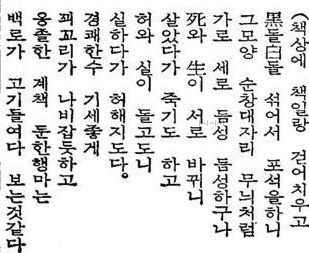 (책상에 책일랑 걷어치우고
黑돌白돌 섞어서 포석을하니
그모양 순창대자리 무늬처럼
가로 세로 듬성 듬성하구나
死와 生이 서로 바뀌니
살았다가 죽기도 하고
허와 실이 돌고도니
실하다가 허해지도다。
경쾌한수 기세좋게
꾀꼬리가 나비잡듯하고
옹졸한 계책 둔한행마는
백로가 고기들여다 보는것같다